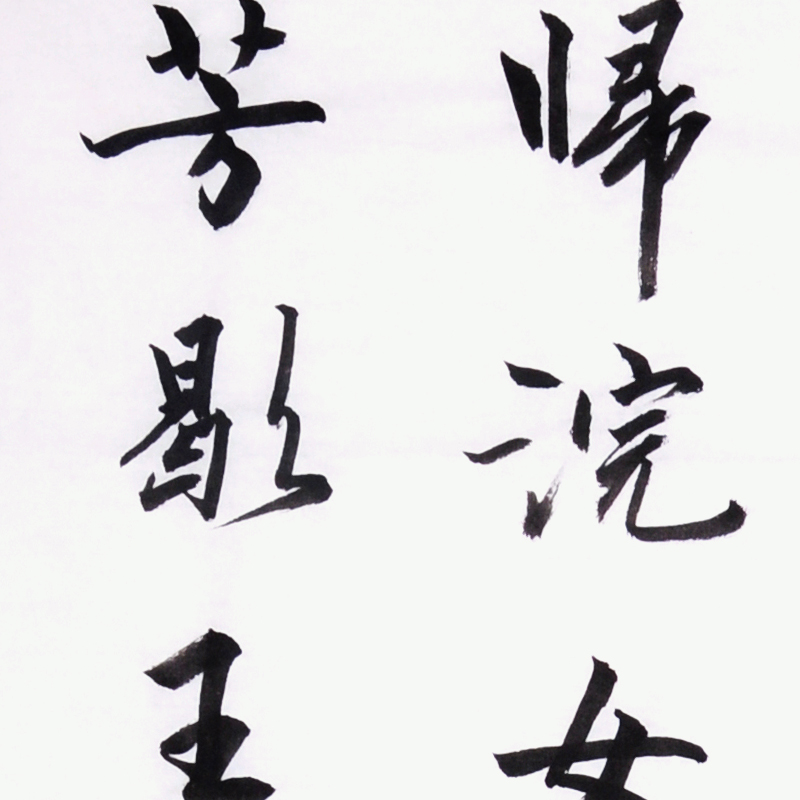 帰浣女
芳歇王